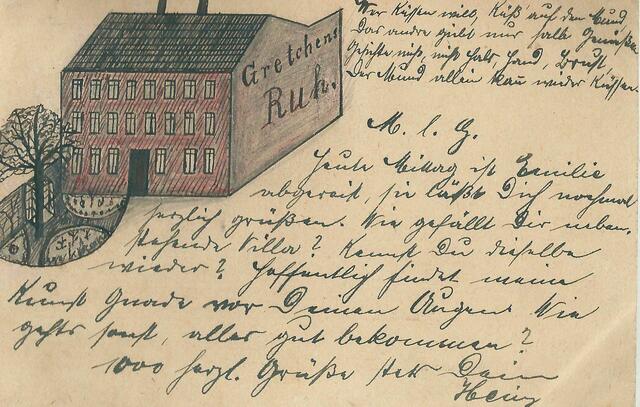 Gretchens
Ruh.
Wer Küssen will, küß' auf den Mund
Das andre giebt nur halbe Genüsse
Gesichte nicht, nicht Hals, Hand, Brust
Der Mund allein kann wieder Küssen.
M. l. G.
Heute Mittag ist Emilie
abgereist, sie läßt Dich nochmal
herzlich grüßen. Wie gefällt Dir neben-
stehende Villa? Kennst Du dieselbe
wieder? Hoffentlich findet meine
Kunst Gnade vor Deinen Augen. Wie
gehts sonst, alles gut bekommen?
1000 herzl. Grüße stets Dein